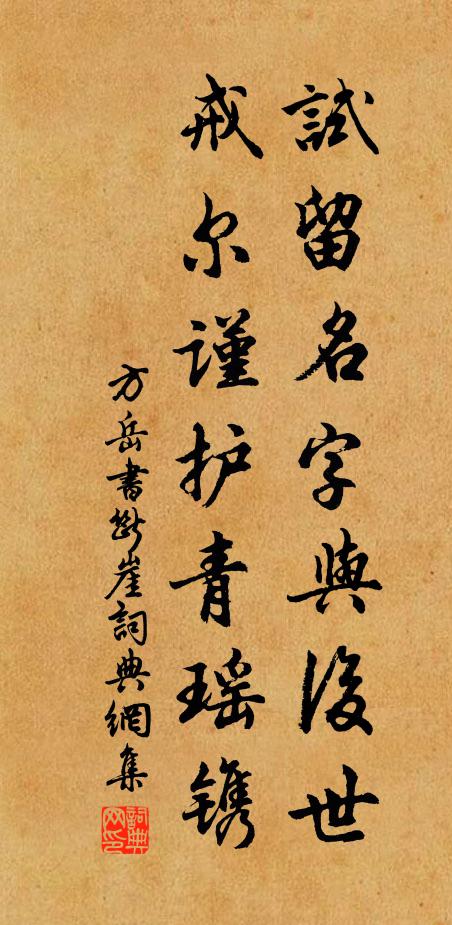 試留名字與後世
戒尔謹护青瑶镌
方岳書断崖詞典網集
詞典网印